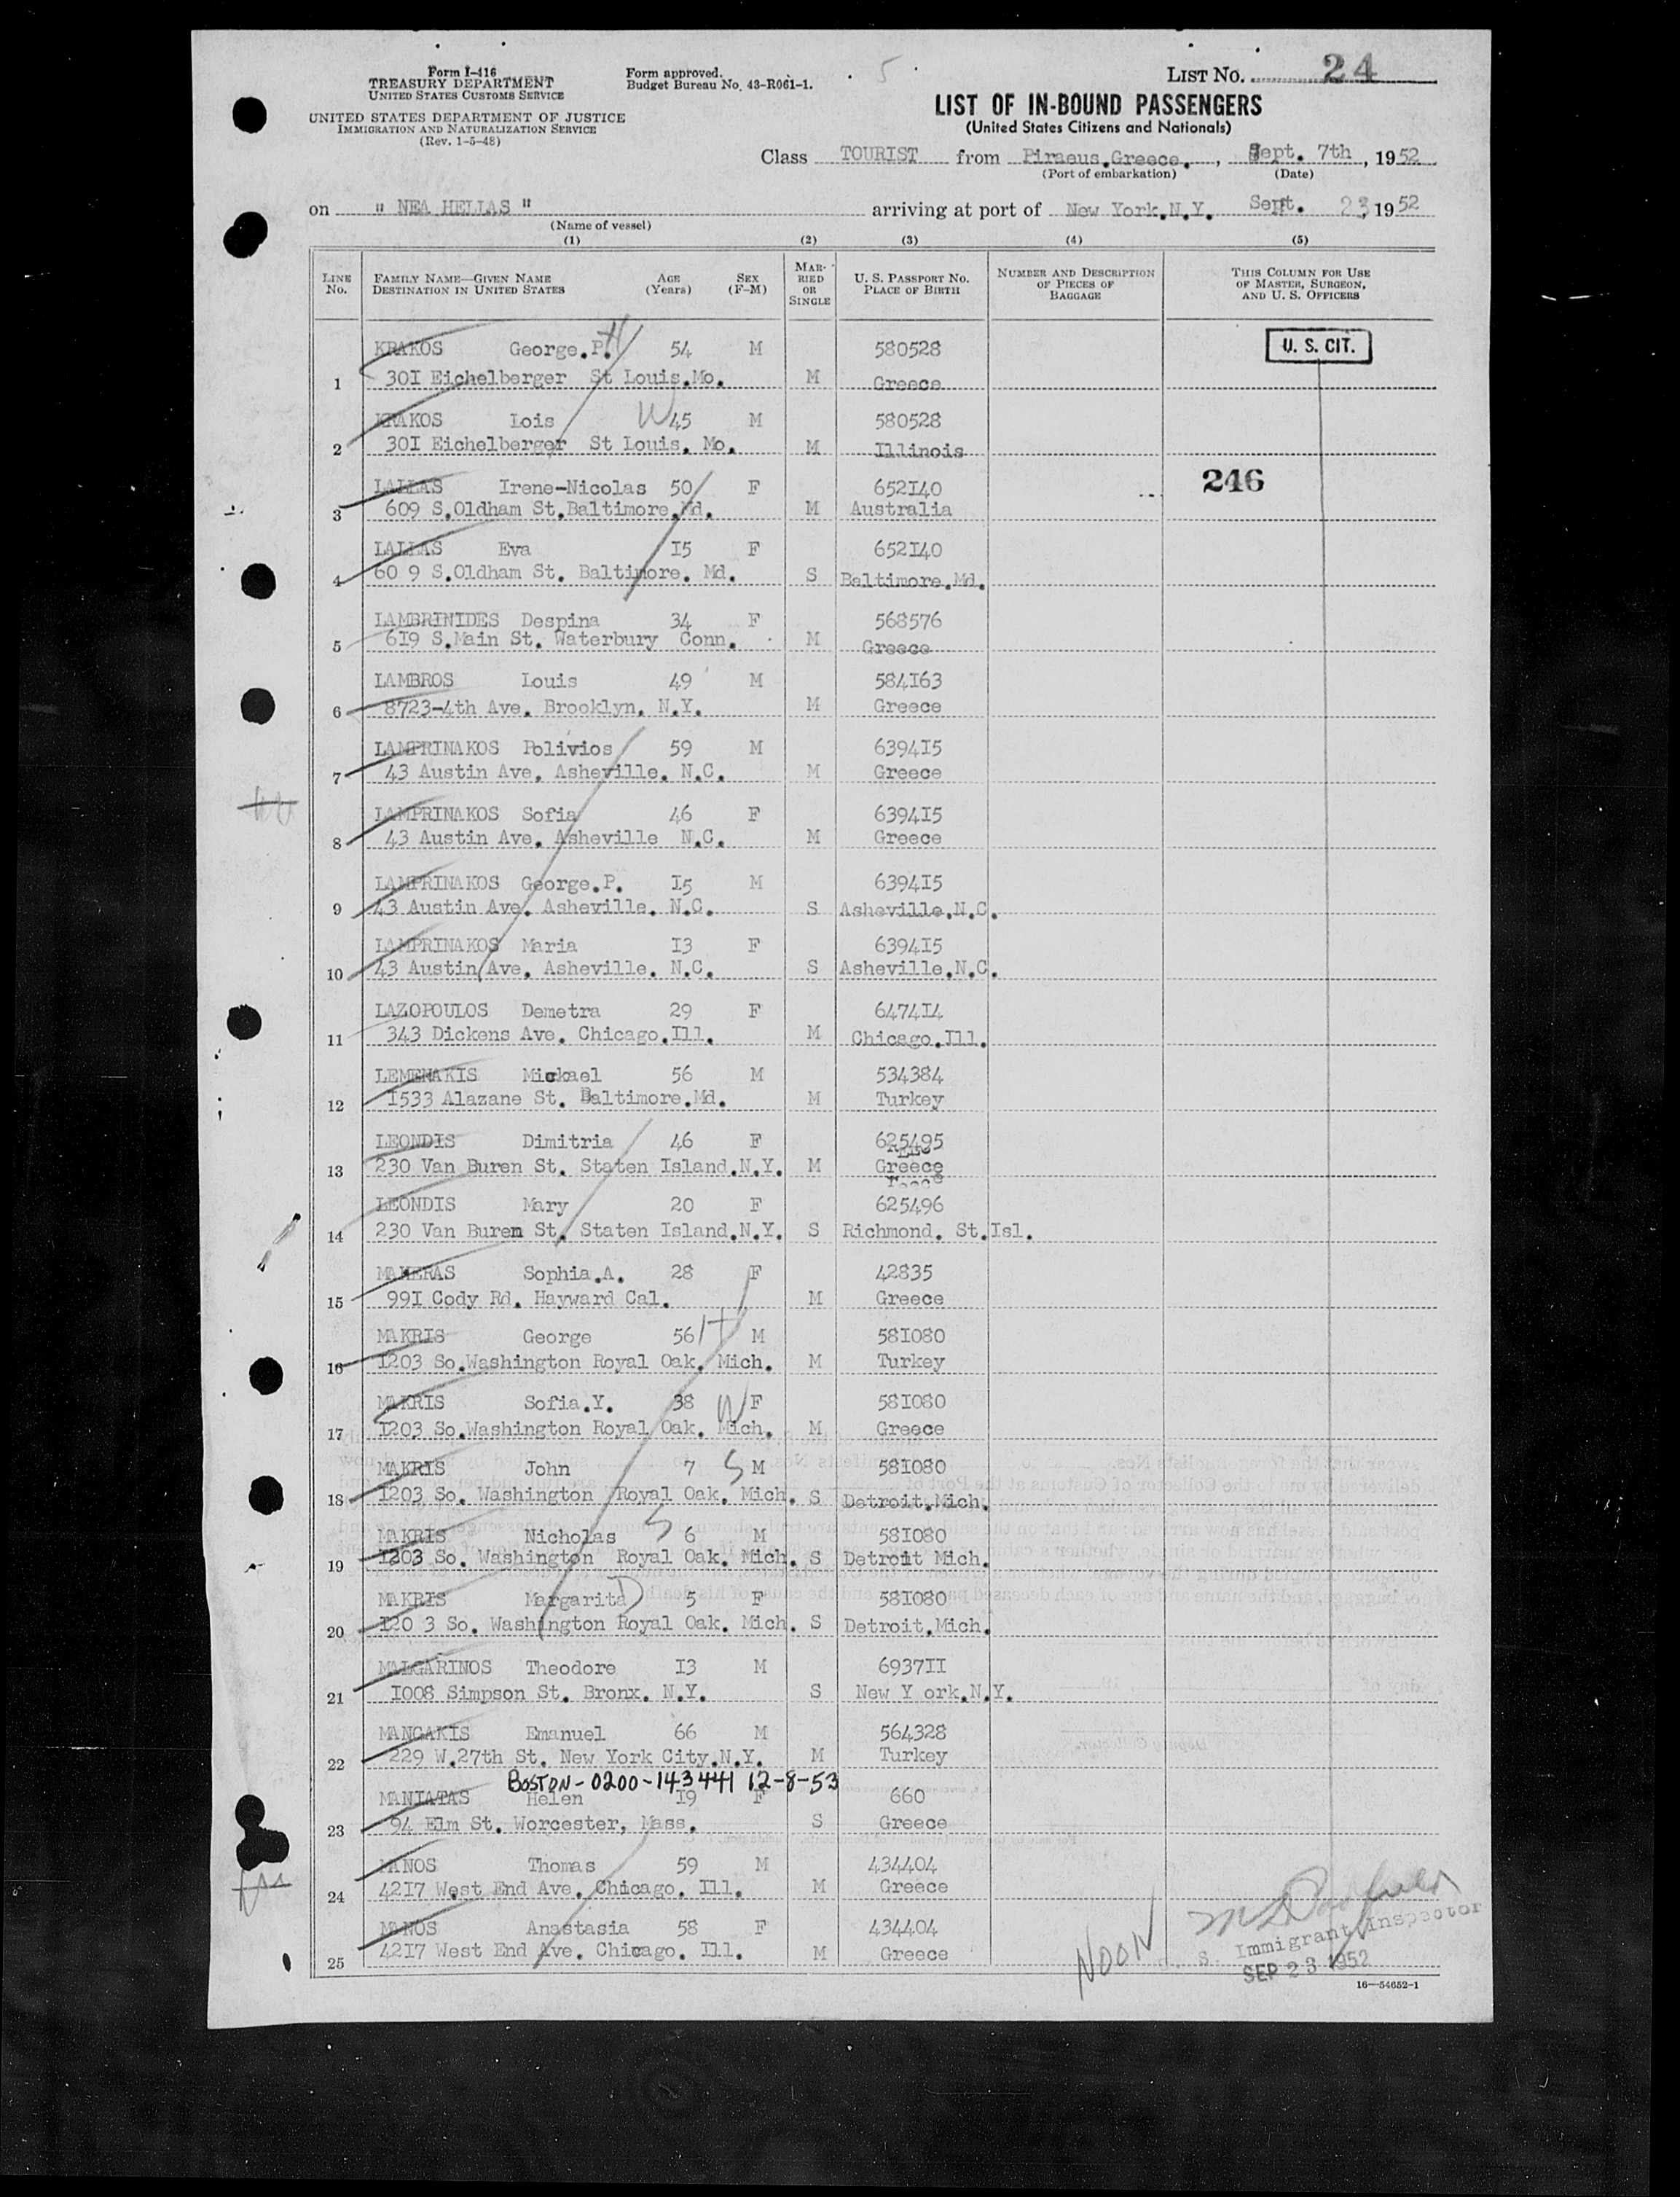 Form I-416
TREASURY DEPARTMENT
UNITED STATES CUSTOMS SERVICE
UNITED STATES DEPARTMENT OF JUSTICE
IMMIGRATION AND NATURALIZATION SERVICE
(Rev. 1-5-48)
Form approved.
Budget Bureau No. 43-R061-1.
5
LIST NO. 24
LIST OF IN-BOUND PASSENGERS
(United States Citizens and Nationals)
Class TOURIST from Piraeus.Greece. , Sept. 7th , 1952
(Port of embarkation) (Date)
on " NEA HELLAS " arriving at port of New York.N.Y. Sept. 23, 1952
(Name of vessel)
(1) (2) (3) (4) (5)
LINE No. FAMILY NAME—GIVEN NAME DESTINATION IN UNITED STATES AGE (Years) SEX (F-M) MARRIED OR SINGLE U. S. PASSPORT NO. PLACE OF BIRTH NUMBER AND DESCRIPTION OF PIECES OF BAGGAGE THIS COLUMN FOR USE OF MASTER, SURGEON, AND U. S. OFFICERS
KRAKOS George.P. H 54 M 580528 U. S. CIT.
1 30I Eichelberger St Louis.Mo. M Greece
KRAKOS Lois W 45 M 580528
2 30I Eichelberger St Louis. Mo. M Illinois
LALLAS Irene-Nicolas 50 F 652I40 246
3 609 S.Oldham St.Baltimore.Md. M Australia
LALLAS Eva I5 F 652I40
4 60 9 S.Oldham St. Baltimore. Md. S Baltimore.Md.
LAMBRINIDES Despina 34 F 568576
5 6I9 S.Main St. Waterbury Conn. M Greece
LAMBROS Louis 49 M 584I63
6 8723-4th Ave. Brooklyn. N.Y. M Greece
LAMPRINAKOS Polivios 59 M 6394I5
7 43 Austin Ave. Asheville. N.C. M Greece
LAMPRINAKOS Sofia 46 F 6394I5
8 43 Austin Ave. Asheville N.C. M Greece
LAMPRINAKOS George.P. I5 M 6394I5
9 43 Austin Ave. Asheville. N.C. S Asheville.N.C.
LAMPRINAKOS Maria I3 F 6394I5
10 43 Austin Ave. Asheville. N.C. S Asheville.N.C.
LAZOPOULOS Demetra 29 F 6474I4
11 343 Dickens Ave. Chicago.Ill. M Chicago.Ill.
LEMENAKIS Mickael 56 M 534384
12 I533 Alazane St. Baltimore.Md. M Turkey
LEONDIS Dimitria 46 F 625495
13 230 Van Buren St. Staten Island.N.Y. M Greece
LEONDIS Mary 20 F 625496
14 230 Van Buren St. Staten Island.N.Y. S Richmond. St.Isl.
MAKERAS Sophia.A. 28 F 42835
15 99I Cody Rd. Hayward Cal. M Greece
MAKRIS George 56 H M 58I080
16 I203 So.Washington Royal Oak. Mich. M Turkey
MAKRIS Sofia.Y. 38 W F 58I080
17 I203 So.Washington Royal Oak. Mich. M Greece
MAKRIS John 7 S M 58I080
18 I203 So. Washington Royal Oak. Mich. S Detroit.Mich.
MAKRIS Nicholas S 6 M 58I080
19 I203 So. Washington Royal Oak. Mich. S Detroit Mich.
MAKRIS Margarita D 5 F 58I080
20 I20 3 So. Washington Royal Oak. Mich. S Detroit.Mich.
MALGARINOS Theodore I3 M 6937II
21 I008 Simpson St. Bronx. N.Y. S New Y ork.N.Y.
MANGAKIS Emanuel 66 M 564328
22 229 W.27th St. New York City.N.Y. M Turkey
BOSTON-0200-143441 12-8-53
MANIATAS Helen I9 F 660
23 94 Elm St. Worcester, Mass. S Greece
MANOS Thomas 59 M 434404
24 42I7 West End Ave. Chicago. Ill. M Greece
MANOS Anastasia 58 F 434404
25 42I7 West End Ave. Chicago. Ill. M Greece
NOON
U. S. Immigrant Inspector
SEP 23 1952
16—54652-1